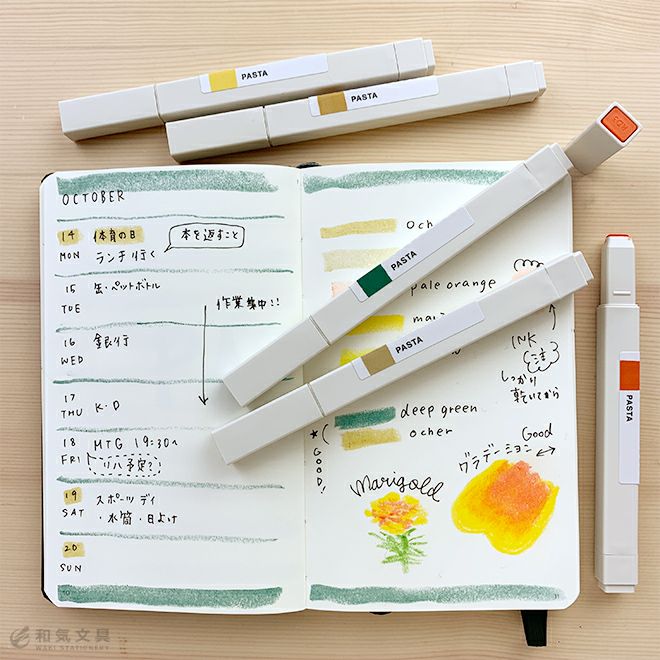 PASTA
PASTA
RD5
OCTOBER
14 体育の日
MON ランチ行く
本を返すこと
15 缶・ペットボトル
TUE
作業集中!!
16 銀行
WED
17
THU K.D
18 MTG 19:30~
FRI リハ予定?
19 スポーツデイ
SAT ・水筒・日よけ
20
SUN
PASTA
pale orange
PASTA
INK
注
しっかり
乾いてから
PASTA
deep green
ocher
GOOD!
Good
グラデーション
Marigold
和気文具
WAKI STATIONERY